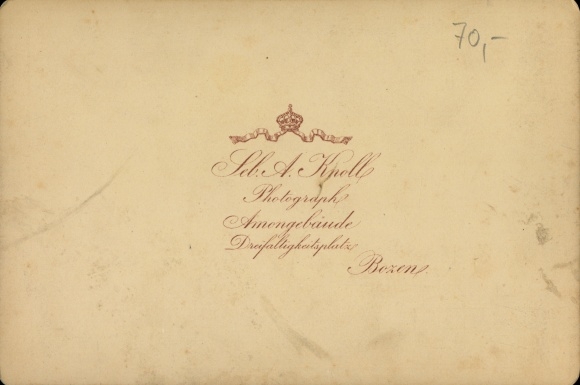 70,-
Seb. A. Knoll
Photograph
Amongebäude
Dreifaltigkeitsplatz
Bozen.